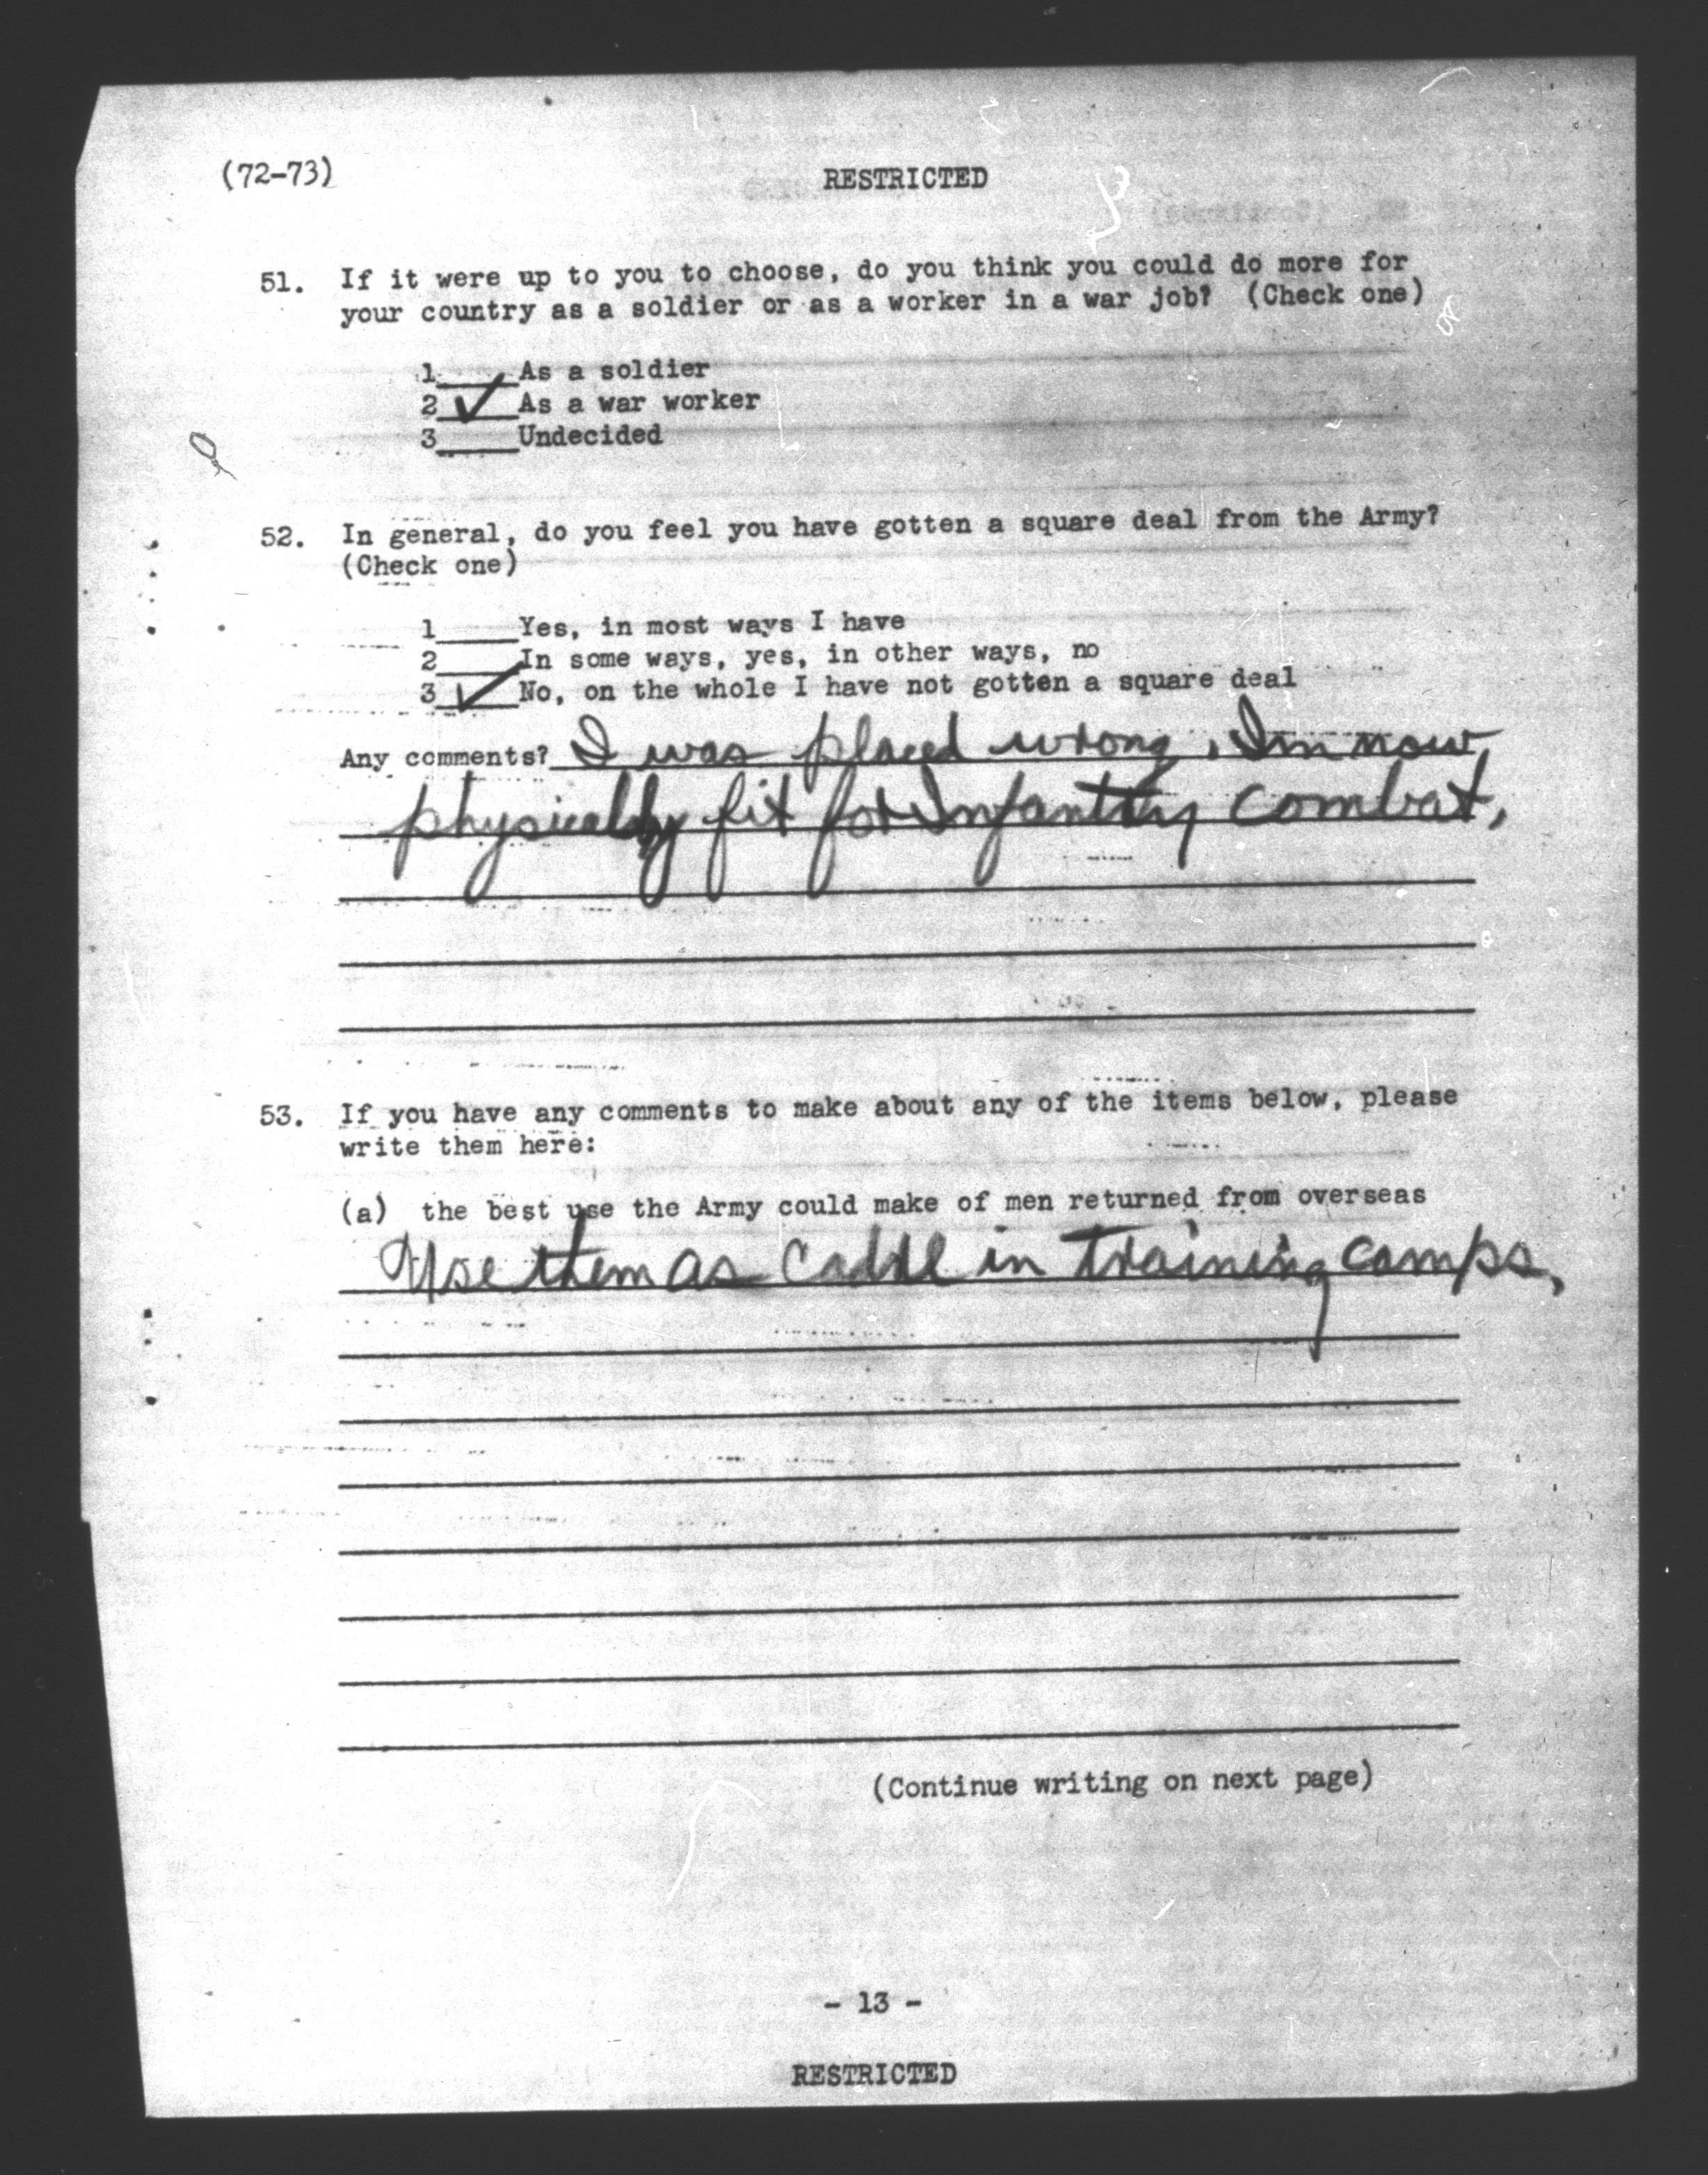 (72-73)
RESTRICTED
51. If it were up to you to choose, do you think you could do more for
your country as a soldier or as a worker in a war job? (Check one)
1 As a soldier
2 ✓ As a war worker
3 Undecided
52. In general, do you feel you have gotten a square deal from the Army?
(Check one)
1 Yes, in most ways I have
2 In some ways, yes, in other ways, no
3 ✓ No, on the whole I have not gotten a square deal
Any comments? I was placed wrong, Im now
physically fit for Infantry combat,
53. If you have any comments to make about any of the items below, please
write them here:
(a) the best use the Army could make of men returned from overseas
Use them as in training camps,
(Continue writing on next page)
- 13 -
RESTRICTED